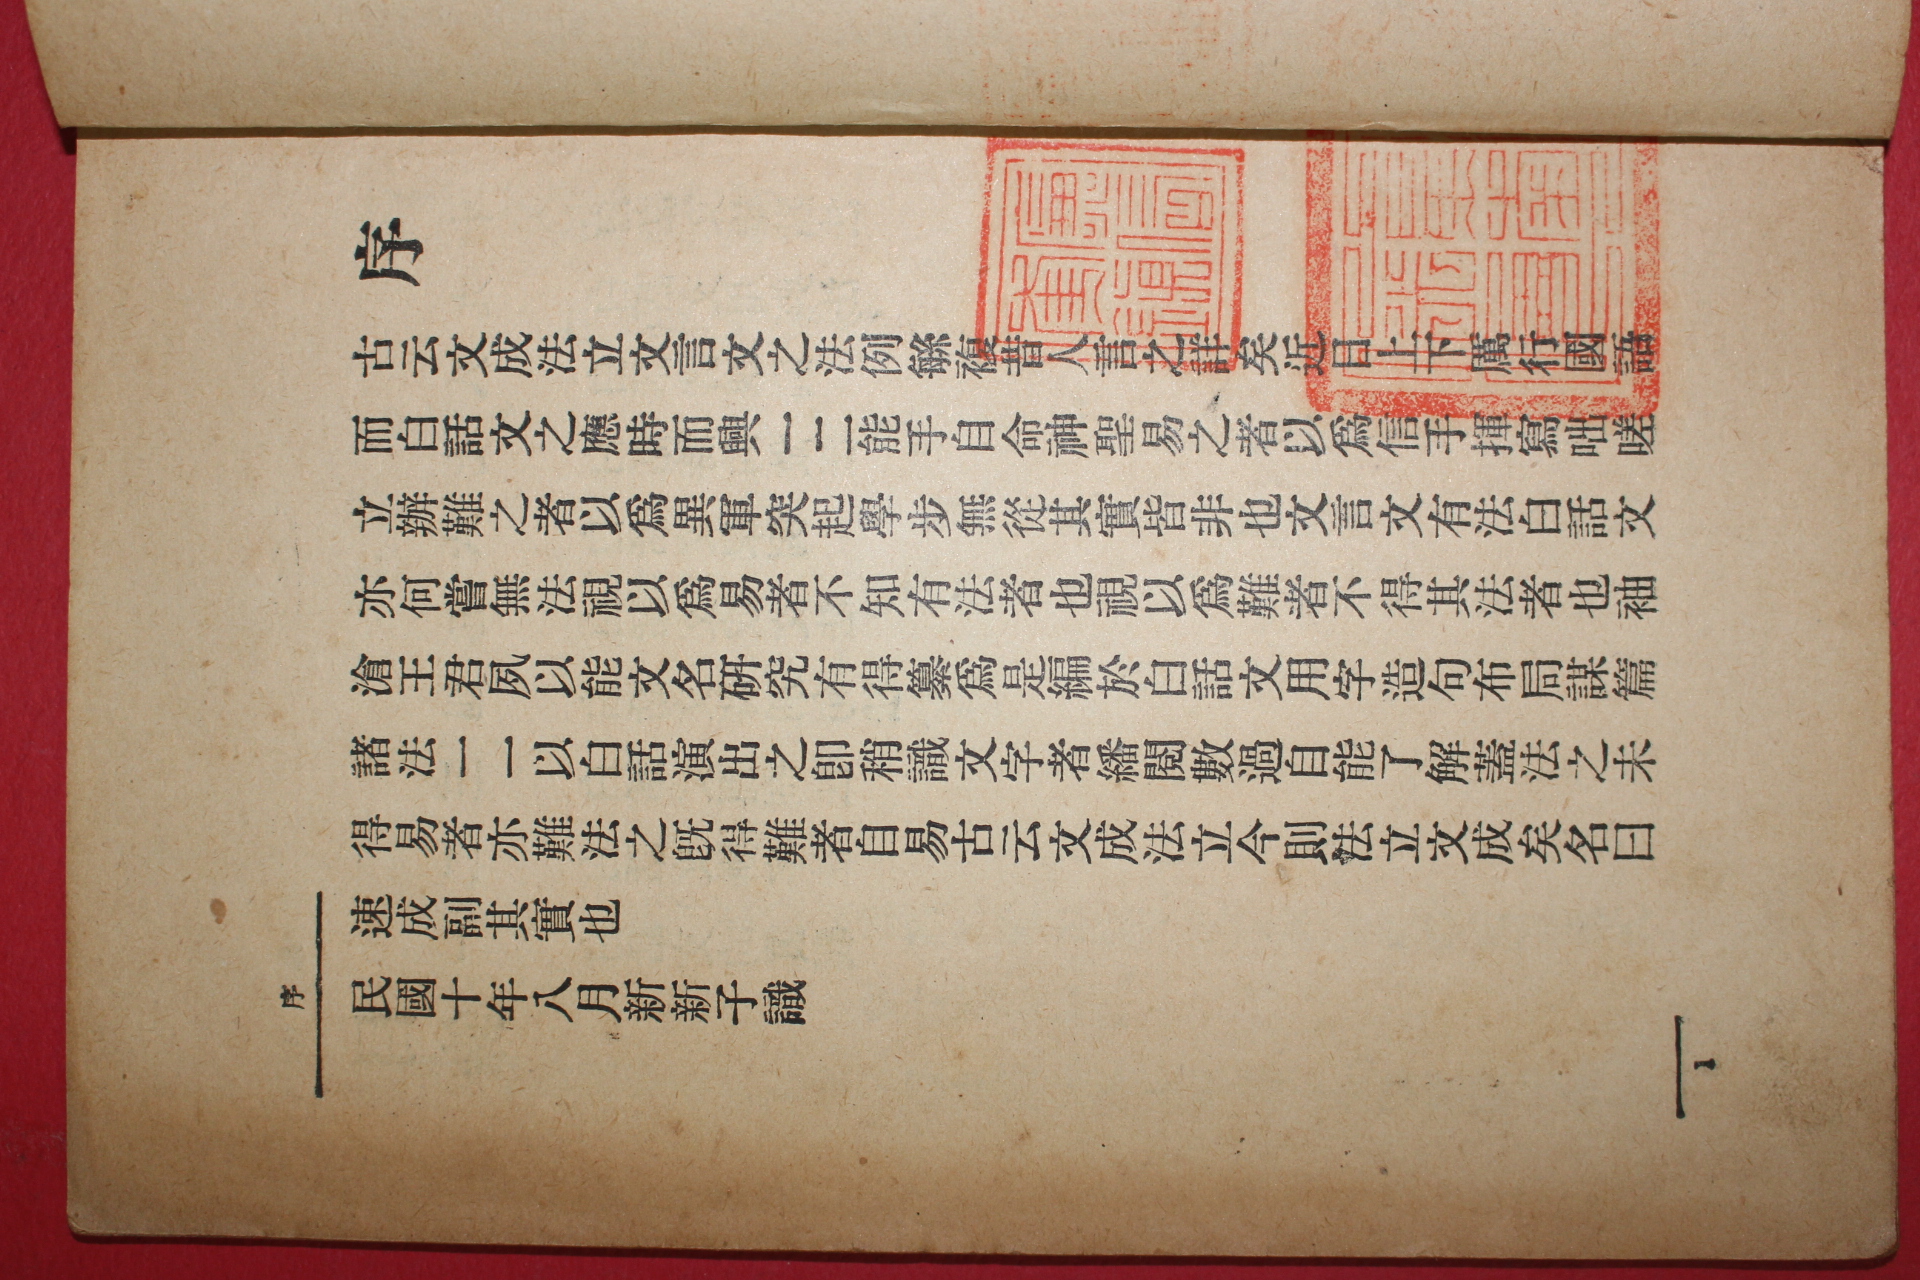 序
古云文成法立文言文之法例緐複昔人言之詳矣近日上下厲行國語
而白話文之應時而興一二能手自命神聖易之者以爲信手揮寫咄嗟
立辦難之者以爲異軍突起學步無從其實皆非也文言文有法白話文
亦何嘗無法視以爲易者不知有法者也視以爲難者不得其法者也袖
滄王君夙以能文名研究有得纂爲是編於白話文用字造句布局謀篇
諸法一一以白話演出之卽稍識文字者繙閱數過自能了解蓋法之未
得易者亦難法之旣得難者自易古云文成法立今則法立文成矣名曰
速成副其實也
民國十年八月新新子識
序
1